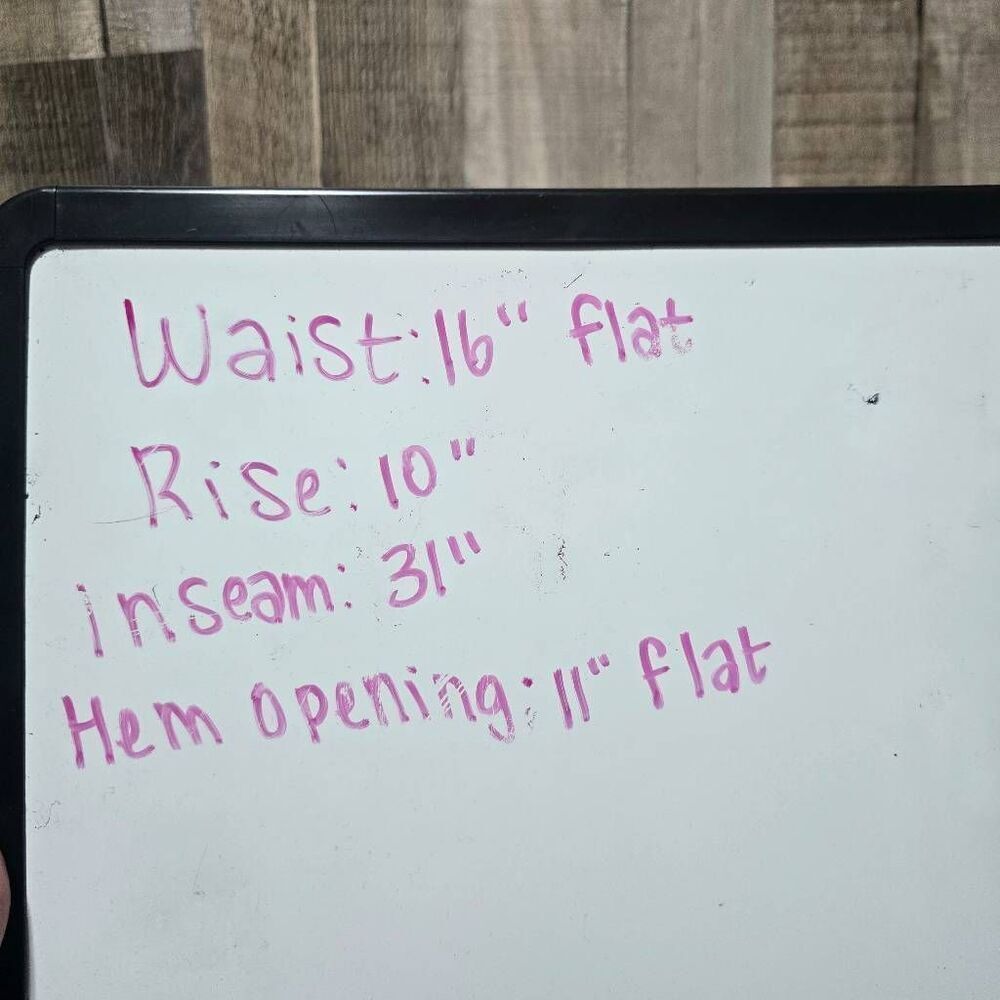 Waist: 16" flat
Rise: 10"
inseam: 31"
Hem opening: 11" flat